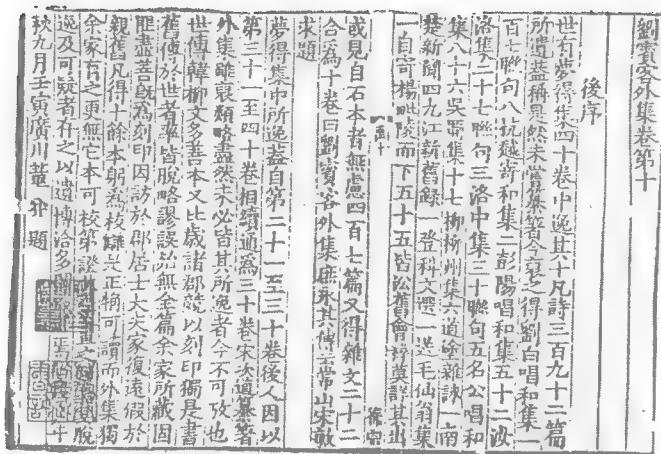 劉賓客外集卷第十
後序
世有夢得集四十卷中逸其十凡詩三百九十二篇
所遺蓋稱是然未嘗纂著今裒之得劉白唱和集一
百七聯句八杭越寄和集二彭陽唱和集五十二汝
洛集二十七聯句三洛中集三十聯句五名公唱和
集八十六吳蜀集十七柳柳州集六道塗雜詠一南
楚新聞四九江新舊錄一登科文選一送毛仙翁集
一自寄楊毗陵而下五十五皆沿舊會粹莫詳其出
或見自石本者無慮四百七篇又得雜文二十二
合為十卷曰劉賓客外集庶永其傳云常山宋敏
求題
夢得集中所逸蓋自第二十一至三十卷後人因以
第三十一至四十卷相續通為三十卷宋次道纂著
外集雖裒類略盡然未必皆其所逸者今不可攷也
世傳韓柳文多善本又比歲諸郡競以刻印獨是書
舊傳於世者率皆脫略謬誤殆無全篇余家所藏因
親舊凡得十餘本躬為校讎是正稍可讀而外集獨
余家有之更無它本可校第證
逸及可疑者存之以遺博洽多聞
秋九月壬寅廣川董弅題